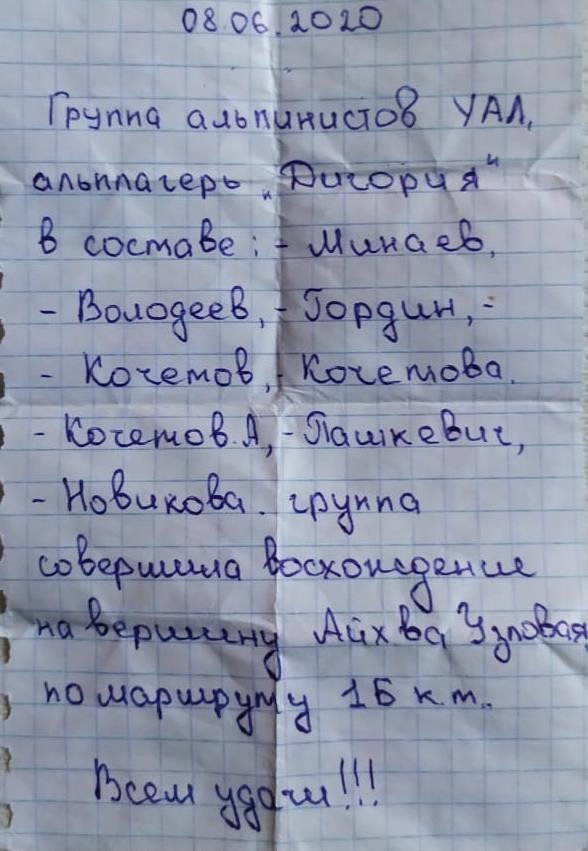 08.06.2020
Группа альпинистов УАЛ,
альплагерь „Дигория"
в составе: - Минаев,
- Володеев, - Гордин, -
- Кочетов, - Кочетова.
- Кочетов.А, - Пашкевич,
- Новикова. группа
совершила восхождение
на вершину Айхва Узловая
по маршруту 1Б к.т..
Всем удачи!!!